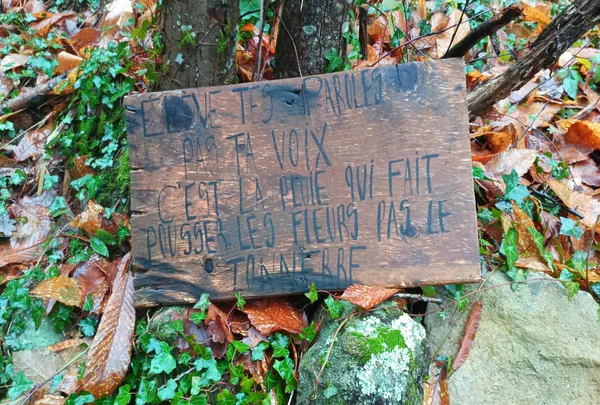 ELEVE TES PAROLES
PAS TA VOIX
C'EST LA PLUIE QUI FAIT
POUSSER LES FLEURS PAS LE
TONNERRE